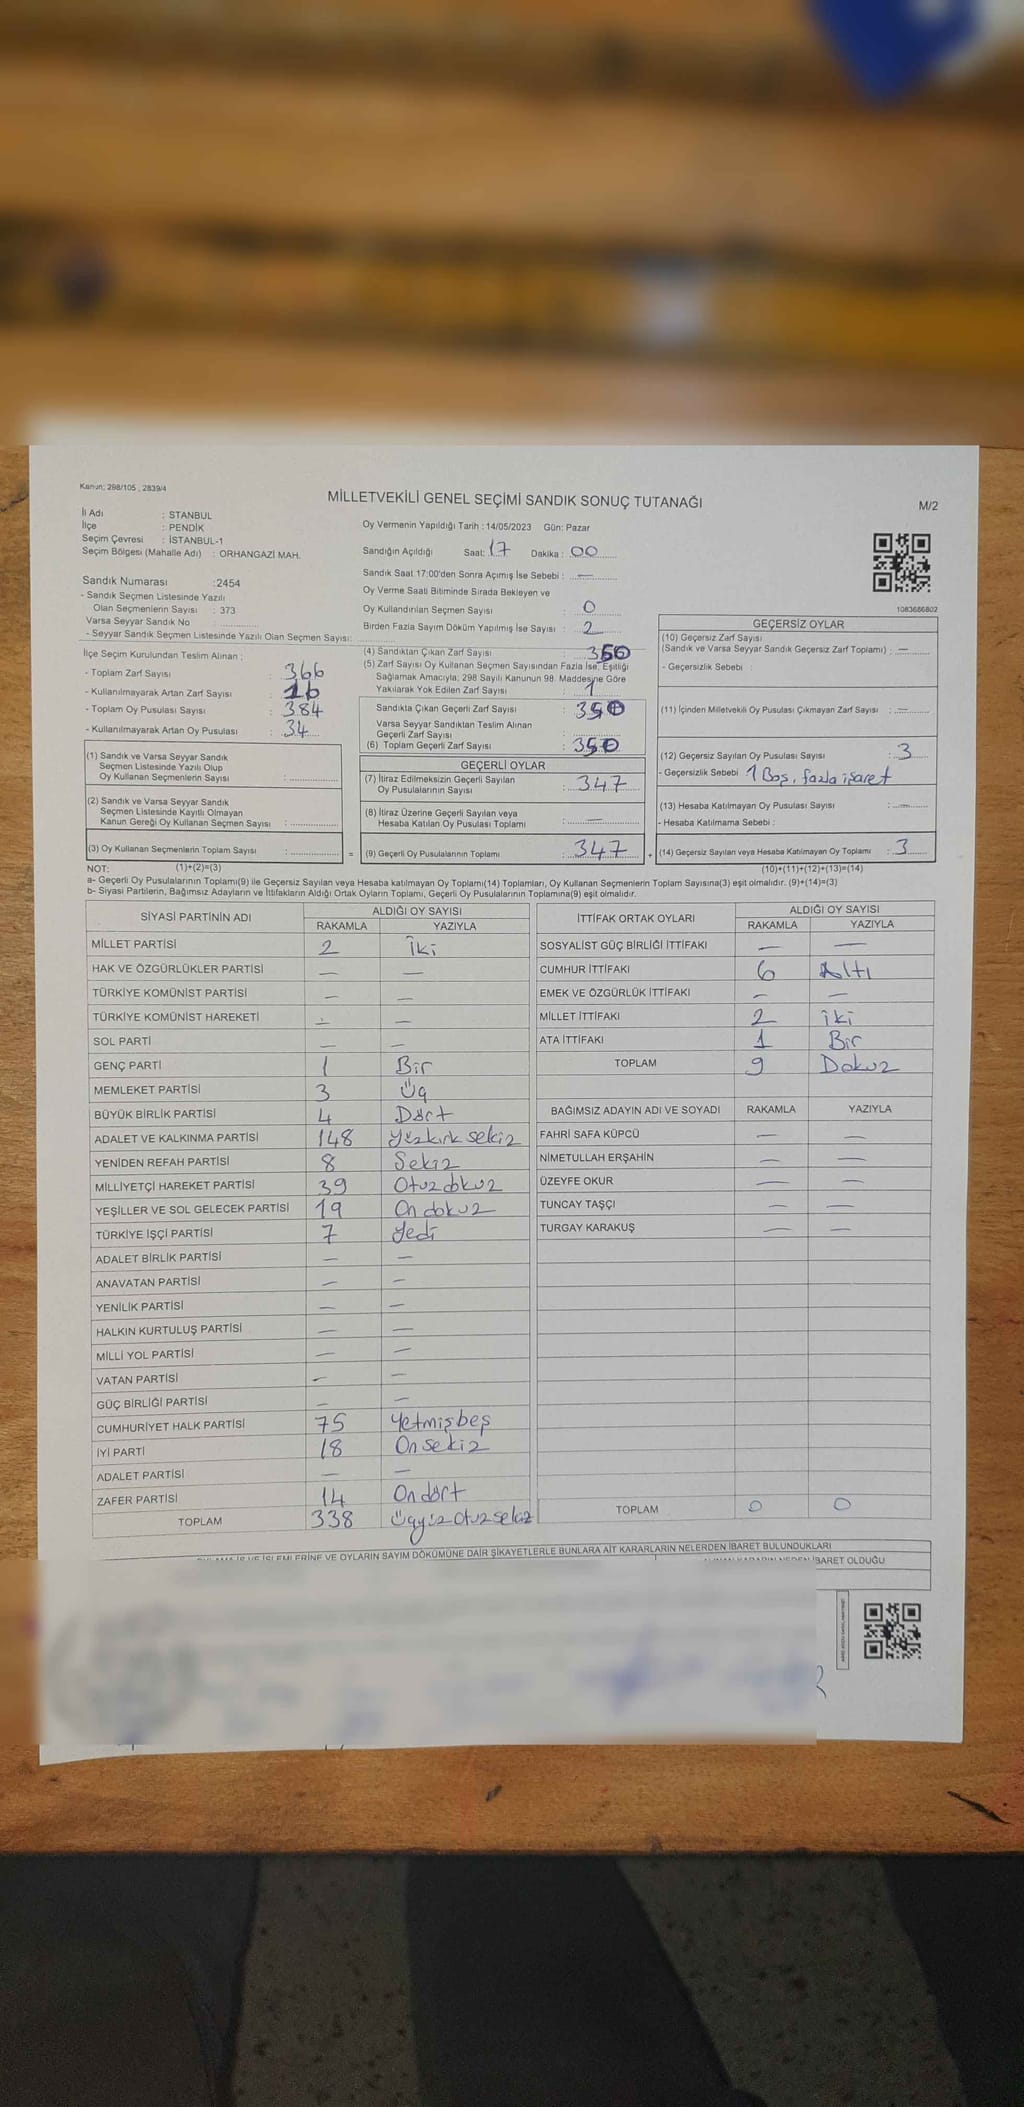 Kanun: 298/105 , 2839/4
MİLLETVEKİLİ GENEL SEÇİMİ SANDIK SONUÇ TUTANAĞI
M/2
İl Adı : STANBUL
İlçe : PENDİK
Seçim Çevresi : İSTANBUL-1
Seçim Bölgesi (Mahalle Adı) : ORHANGAZİ MAH.
Sandık Numarası :2454
- Sandık Seçmen Listesinde Yazılı
Olan Seçmenlerin Sayısı : 373
Varsa Seyyar Sandık No :
- Seyyar Sandık Seçmen Listesinde Yazılı Olan Seçmen Sayısı:
Oy Vermenin Yapıldığı Tarih : 14/05/2023 Gün: Pazar
Sandığın Açıldığı Saat: 17 Dakika : 00
Sandık Saat 17:00'den Sonra Açımış İse Sebebi : —
Oy Verme Saati Bitiminde Sırada Bekleyen ve
Oy Kullandırılan Seçmen Sayısı : 0
Birden Fazla Sayım Döküm Yapılmış İse Sayısı : 2
1083686802
İlçe Seçim Kurulundan Teslim Alınan ;
- Toplam Zarf Sayısı : 366
- Kullanılmayarak Artan Zarf Sayısı : 16
- Toplam Oy Pusulası Sayısı : 384
- Kullanılmayarak Artan Oy Pusulası : 34
(1) Sandık ve Varsa Seyyar Sandık
Seçmen Listesinde Yazılı Olup
Oy Kullanan Seçmenlerin Sayısı :
(2) Sandık ve Varsa Seyyar Sandık
Seçmen Listesinde Kayıtlı Olmayan
Kanun Gereği Oy Kullanan Seçmen Sayısı :
(3) Oy Kullanan Seçmenlerin Toplam Sayısı : =
(4) Sandıktan Çıkan Zarf Sayısı : 350
(5) Zarf Sayısı Oy Kullanan Seçmen Sayısından Fazla İse, Eşitliği
Sağlamak Amacıyla; 298 Sayılı Kanunun 98. Maddesine Göre
Yakılarak Yok Edilen Zarf Sayısı : 1
Sandıkta Çıkan Geçerli Zarf Sayısı : 350
Varsa Seyyar Sandıktan Teslim Alınan
Geçerli Zarf Sayısı :
(6) Toplam Geçerli Zarf Sayısı : 350
GEÇERLİ OYLAR
(7) İtiraz Edilmeksizin Geçerli Sayılan
Oy Pusulalarının Sayısı : 347
(8) İtiraz Üzerine Geçerli Sayılan veya
Hesaba Katılan Oy Pusulası Toplamı : —
(9) Geçerli Oy Pusulalarının Toplamı : 347 +
GEÇERSİZ OYLAR
(10) Geçersiz Zarf Sayısı
(Sandık ve Varsa Seyyar Sandık Geçersiz Zarf Toplamı) : —
- Geçersizlik Sebebi :
(11) İçinden Milletvekili Oy Pusulası Çıkmayan Zarf Sayısı : —
(12) Geçersiz Sayılan Oy Pusulası Sayısı : 3
- Geçersizlik Sebebi 1 Boş, fazla işaret
(13) Hesaba Katılmayan Oy Pusulası Sayısı : —
- Hesaba Katılmama Sebebi :
(14) Geçersiz Sayılan veya Hesaba Katılmayan Oy Toplamı : 3
NOT: (1)+(2)=(3) (10)+(11)+(12)+(13)=(14)
a- Geçerli Oy Pusulalarının Toplamı(9) ile Geçersiz Sayılan veya Hesaba katılmayan Oy Toplamı(14) Toplamları, Oy Kullanan Seçmenlerin Toplam Sayısına(3) eşit olmalıdır. (9)+(14)=(3)
b- Siyasi Partilerin, Bağımsız Adayların ve İttifakların Aldığı Ortak Oyların Toplamı, Geçerli Oy Pusulalarının Toplamına(9) eşit olmalıdır.
SİYASİ PARTİNİN ADI ALDIĞI OY SAYISI
RAKAMLA YAZIYLA
MİLLET PARTİSİ 2 İki
HAK VE ÖZGÜRLÜKLER PARTİSİ — —
TÜRKİYE KOMÜNİST PARTİSİ — —
TÜRKİYE KOMÜNİST HAREKETİ — —
SOL PARTİ — —
GENÇ PARTİ 1 Bir
MEMLEKET PARTİSİ 3 Üç
BÜYÜK BİRLİK PARTİSİ 4 Dört
ADALET VE KALKINMA PARTİSİ 148 Yüzkırk sekiz
YENİDEN REFAH PARTİSİ 8 Sekiz
MİLLİYETÇİ HAREKET PARTİSİ 39 Otuz dokuz
YEŞİLLER VE SOL GELECEK PARTİSİ 19 On dokuz
TÜRKİYE İŞÇİ PARTİSİ 7 Yedi
ADALET BİRLİK PARTİSİ — —
ANAVATAN PARTİSİ — —
YENİLİK PARTİSİ — —
HALKIN KURTULUŞ PARTİSİ — —
MİLLİ YOL PARTİSİ — —
VATAN PARTİSİ — —
GÜÇ BİRLİĞİ PARTİSİ — —
CUMHURİYET HALK PARTİSİ 75 Yetmişbeş
İYİ PARTİ 18 Onsekiz
ADALET PARTİSİ — —
ZAFER PARTİSİ 14 Ondört
TOPLAM 338 Üçyüz otuz sekiz
İTTİFAK ORTAK OYLARI ALDIĞI OY SAYISI
RAKAMLA YAZIYLA
SOSYALİST GÜÇ BİRLİĞİ İTTİFAKI — —
CUMHUR İTTİFAKI 6 Altı
EMEK VE ÖZGÜRLÜK İTTİFAKI — —
MİLLET İTTİFAKI 2 İki
ATA İTTİFAKI 1 Bir
TOPLAM 9 Dokuz
BAĞIMSIZ ADAYIN ADI VE SOYADI RAKAMLA YAZIYLA
FAHRİ SAFA KÜPCÜ — —
NİMETULLAH ERŞAHİN — —
ÜZEYFE OKUR — —
TUNCAY TAŞÇI — —
TURGAY KARAKUŞ — —
TOPLAM 0 0
VE OYLARIN SAYIM DÖKÜMÜNE DAİR ŞİKAYETLERLE BUNLARA AİT KARARLARIN NELERDEN İBARET BULUNDUKLARI
İBARET OLDUĞU